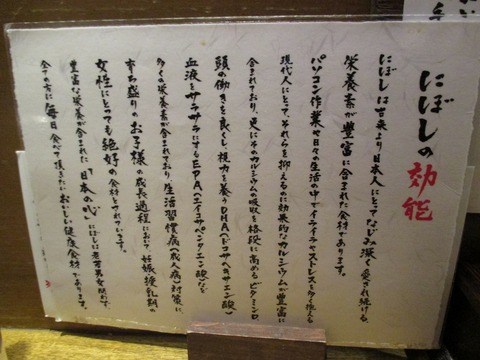 にぼしの効能
にぼしは古来より日本人にとってなじみ深く愛され続ける、
栄養素が豊富に含まれた食材であります。
パソコン作業や日々の生活の中でイライラやストレスを多く抱える
現代人にとって、それらを抑えるのに効果的なカルシウムが豊富に
含まれており、更にそのカルシウムの吸収を格段に高めるビタミンD、
頭の働きを良くし、視力を養うDHA(ドコサヘキサエン酸)
血液をサラサラにするEPA(エイコサペンタエン酸)など
多くの栄養素が含まれており、生活習慣病(成人病)対策に、
育ち盛りのお子様の成長過程において、妊娠、授乳期の
女性にとっても絶好の食材とされています。
豊富な栄養が含まれた「日本の味」にぼしは老若男女問わず、
全ての方に毎日食べて頂きたいおいしい健康食材であります。